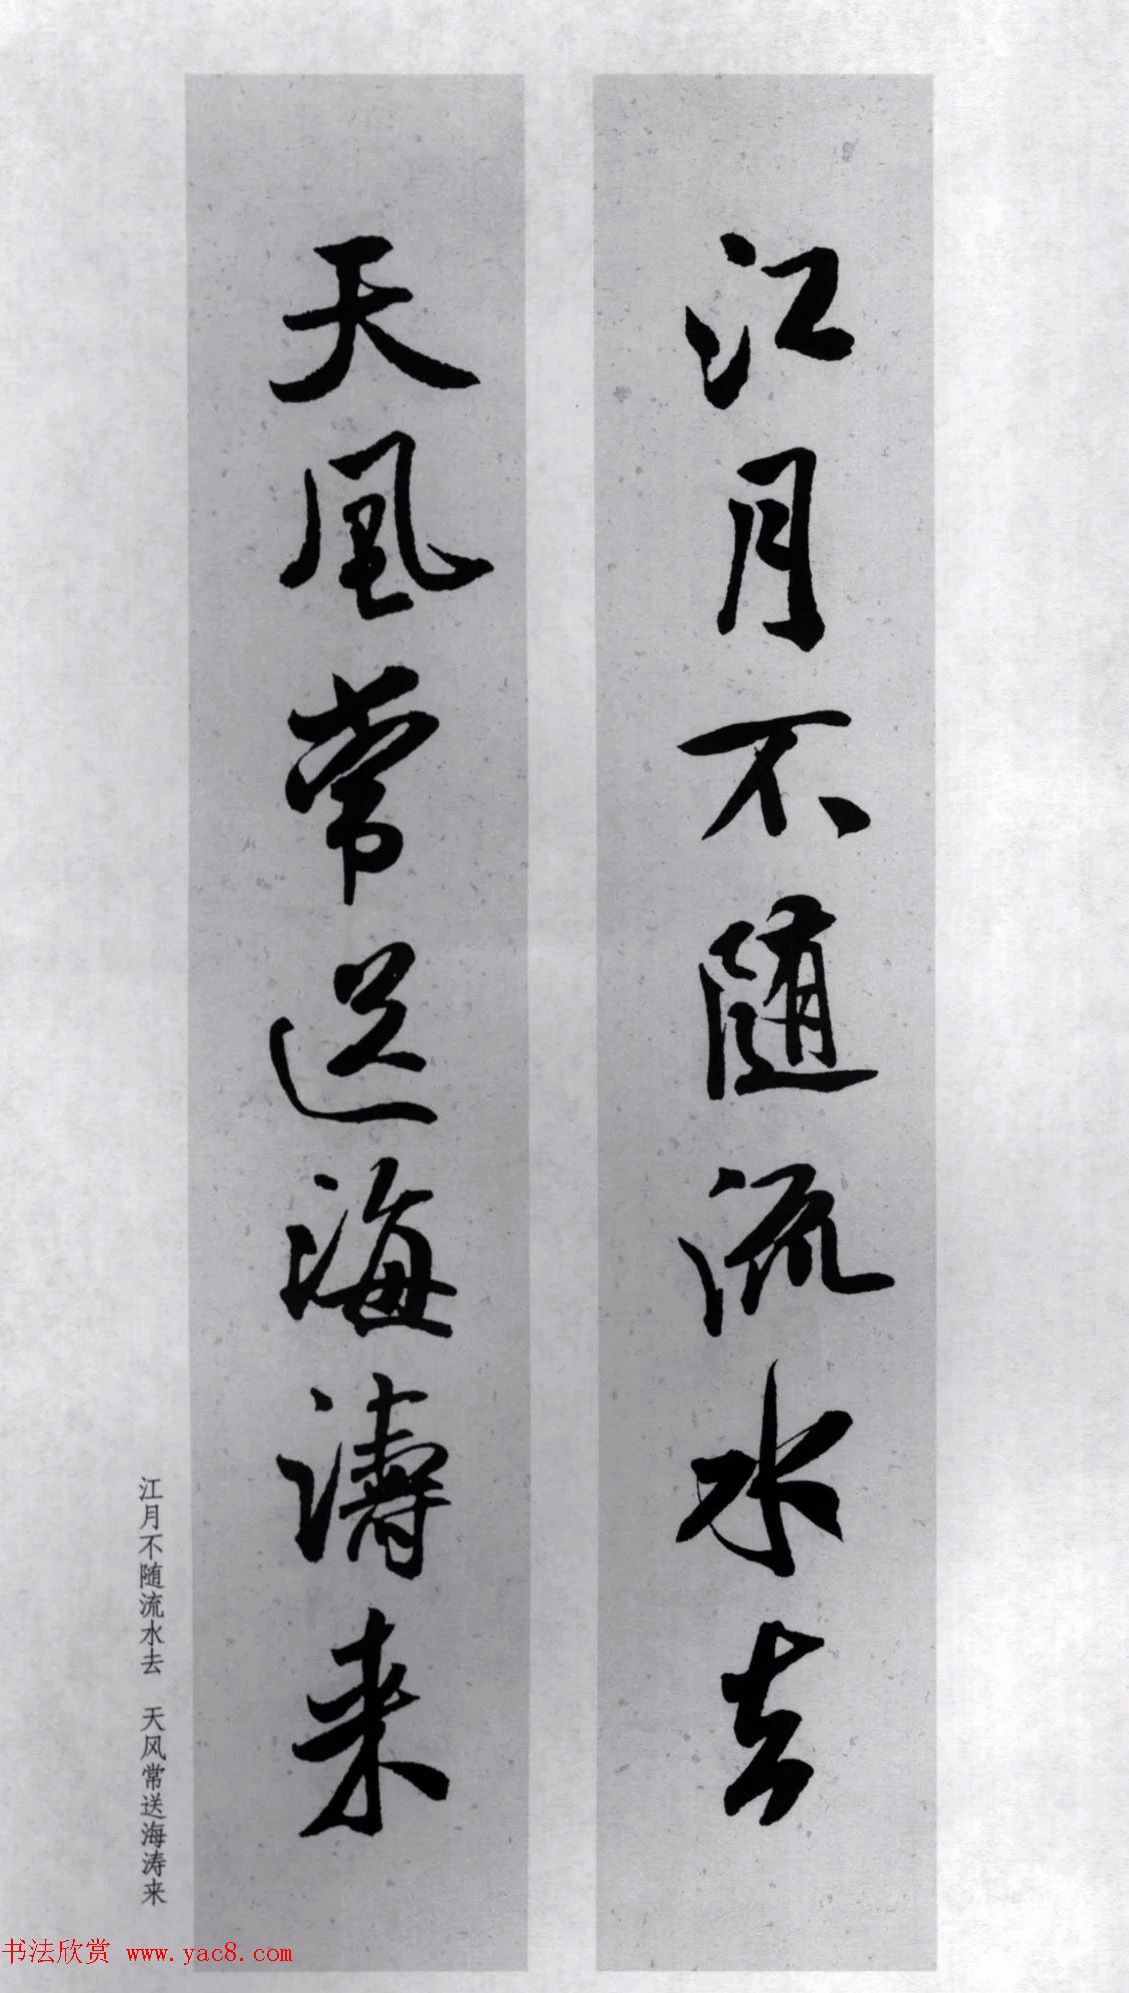 江月不随流水去
天風常送海濤来
江月不随流水去 天风常送海涛来
书法欣赏 www.yac8.com